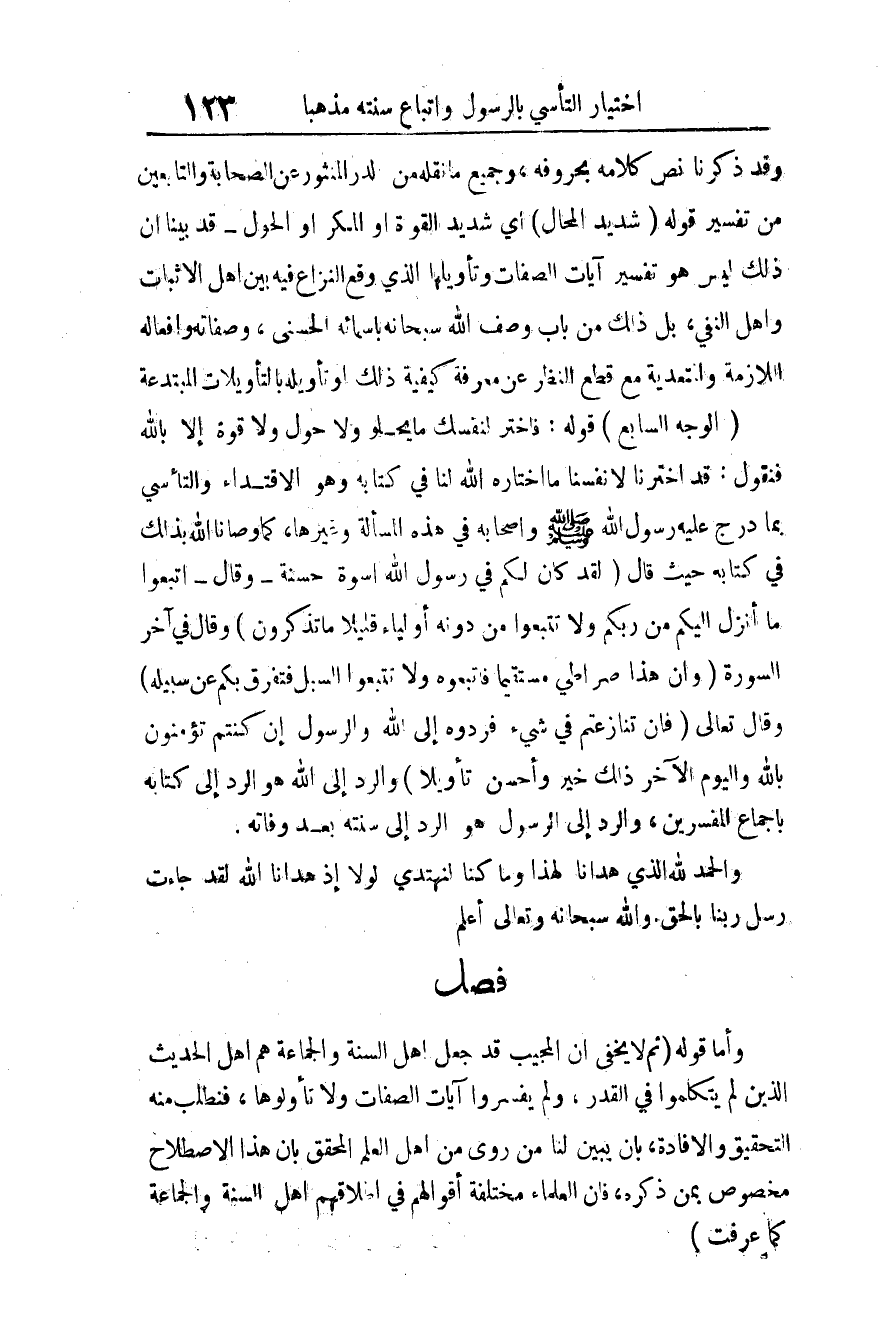 اختيار التأسي بالرسول واتباع سنته مذهبا ١٢٣
وقد ذكرنا نص كلامه بحروفه، وجميع مانقله من لدر المنثور عن الصحابة والتابعين
من تفسير قوله ( شديد المحال ) أي شديد القوة او المكر او الحول ــ قد بينا ان
ذلك ليس هو تفسير آيات الصفات وتأويلها الذي وقع النزاع فيه بين اهل الاثبات
واهل النفي، بل ذلك من باب وصف الله سبحانه باسمائه الحسنى، وصفاته وافعاله
اللازمة والمتعدية مع قطع النظر عن معرفة كيفية ذلك او تأويله بالتأويلات المبتدعة
( الوجه السابع ) قوله : فاختر لنفسك مايحلو ولا حول ولا قوة إلا بالله
فنقول : قد اخترنا لانفسنا مااختاره الله لنا في كتابه وهو الاقتداء والتأسي
بما درج عليه رسول الله ﷺ واصحابه في هذه المسألة وغيرها، كما وصانا الله بذلك
في كتابه حيث قال ( لقد كان لكم في رسول الله اسوة حسنة ــ وقال ــ اتبعوا
ما أنزل اليكم من ربكم ولا تتبعوا من دونه أولياء قليلا ماتذكرون ) وقال في آخر
السورة ( وان هذا صراطي مستقيما فاتبعوه ولا تتبعوا السبل فتفرق بكم عن سبيله)
وقال تعالى ( فان تنازعتم في شيء فردوه إلى الله والرسول إن كنتم تؤمنون
بالله واليوم الآخر ذلك خير وأحسن تأويلا ) والرد إلى الله هو الرد إلى كتابه
باجماع المفسرين، والرد إلى الرسول هو الرد إلى سنته بعد وفاته .
والحمد لله الذي هدانا لهذا وما كنا لنهتدي لولا إذ هدانا الله لقد جاءت
رسل ربنا بالحق. والله سبحانه وتعالى أعلم
فصل
وأما قوله (ثم لايخفى ان المجيب قد جعل اهل السنة والجماعة هم اهل الحديث
الذين لم يتكلموا في القدر، ولم يفسروا آيات الصفات ولا تأولوها، فنطلب منه
التحقيق والافادة، بان يبين لنا من روى من اهل العلم المحقق بان هذا الاصطلاح
مخصوص بمن ذكره، فان العلماء مختلفة أقوالهم في اطلاقهم اهل السنة والجماعة
كما عرفت )